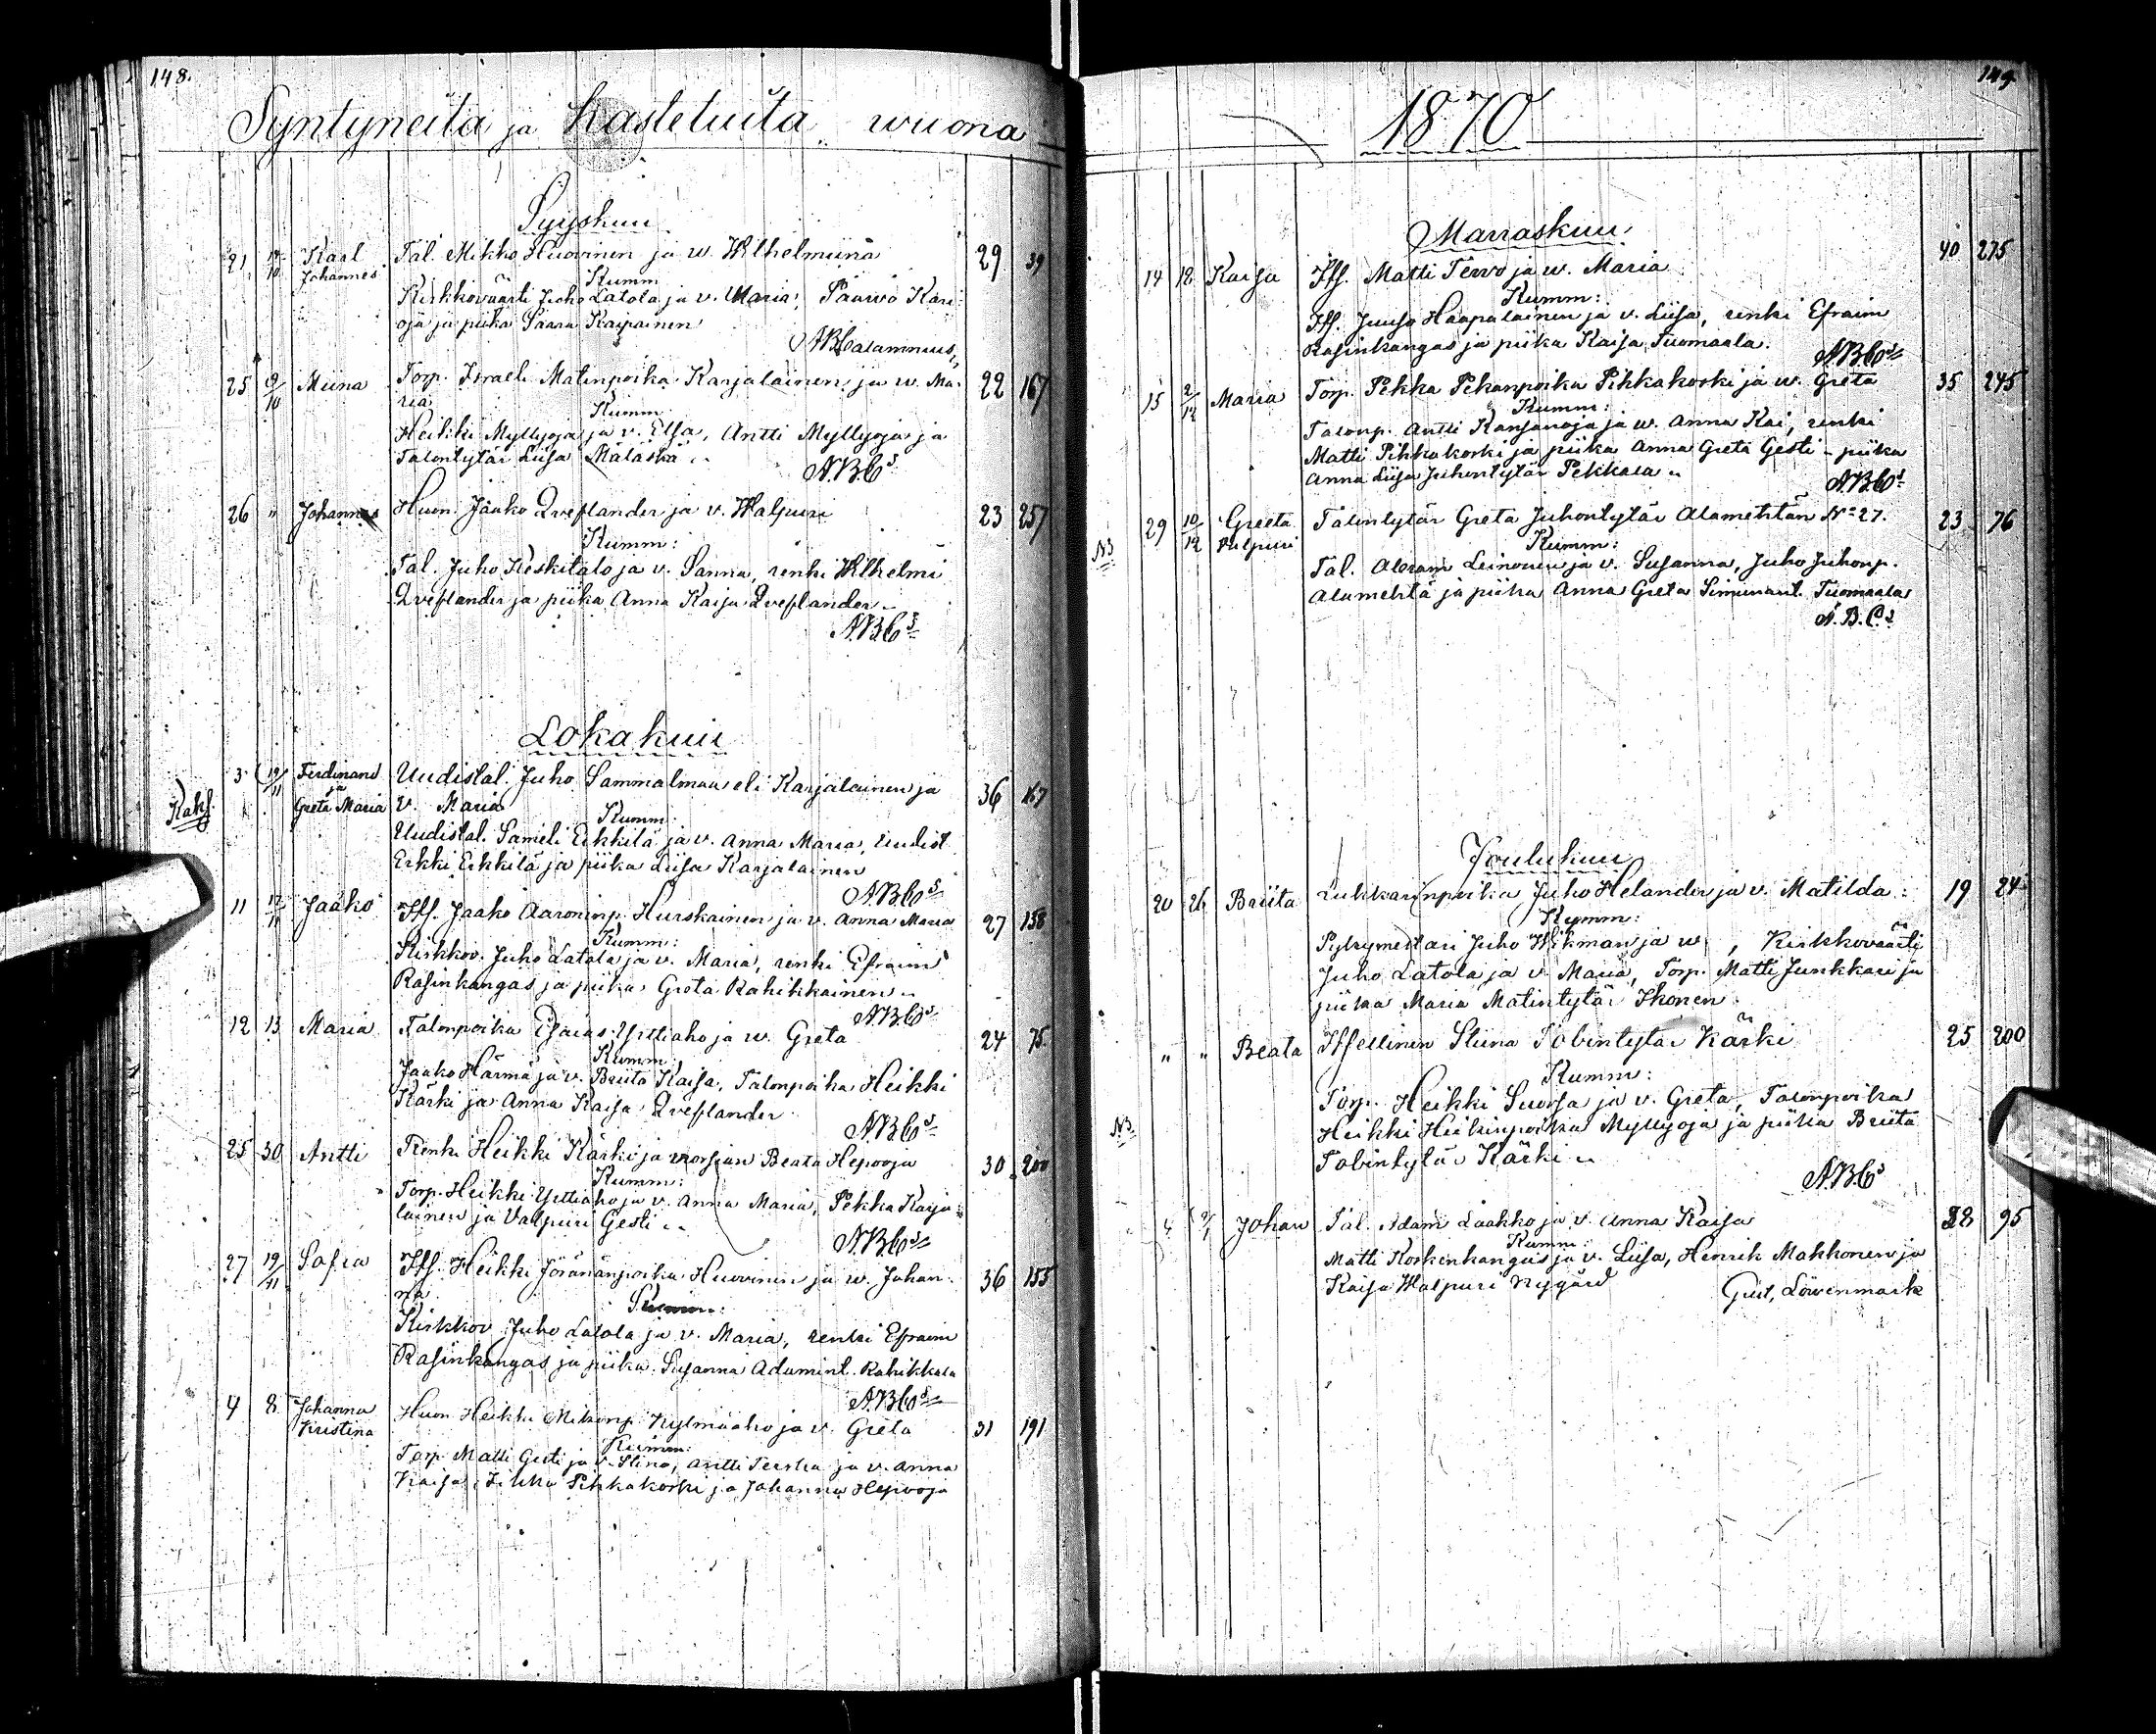 148.
Syntyneitä ja Kastetuita wuona
Syyskuu
21 Karl Tal. Mikko Huovinen ja w. Wilhelmiina 29 39
Johannes Kumm
Kirkkoväärti Juho Latola ja v. Maria, Paavo Kari-
oja ja piika Saara Karpainen
ABCalamnius,
25 9/10 Miina Torp. Israel Matinpoika Karjalainen ja w. Ma- 22 167
ria
Kumm
Heikki Myllyoja ja v. Elsa, Antti Myllyoja ja
Talontytär Liisa Mälaskä
A.B.Cs
26 " Johannes Huon. Jaako Qveflander ja v. Walpuri 23 257
Kumm:
Tal. Juho Keskitalo ja v. Sanna, renki Wilhelmi
Qveflander ja piika Anna Kaisa Qveflander
A.B.Cs
Lokakuu
3 19/11 Ferdinand Uudistal. Juho Sammalmaa eli Karjalainen ja 36 167
ja
Kaks. Greta Maria v. Maria
Kumm:
Uudistal. Sameli Erkkilä ja v. Anna Maria, Uudist
Erkki Erkkilä ja piika Liisa Karjalainen
A.B.Cs
11 12/11 Jaako Its. Jaako Aaroninp. Hurskainen ja v. Anna Maria 27 158
Kumm:
Kirkkov. Juho Latola ja v. Maria, renki Efraim
Rasinkangas ja piika Greta Rahikkainen
A.B.Cs
12 13 Maria Talonpoika Esaias Yrttiaho ja w. Greta 24 75
Kumm:
Jaako Härmä ja v. Briita Kaisa, Talonpoika Heikki
Kärki ja Anna Kaisa Qveflander
A.B.Cs
25 30 Antti Renki Heikki Kärki ja morsian Beata Hepooja 30 200
Kumm:
Torp. Heikki Yrttiaho ja v. Anna Maria, Pekka Karja-
lainen ja Valpuri Gesti
A.B.Cs
27 19/11 Sofia Its. Heikki Jöränänpoika Huovinen ja w. Johan- 36 155
na.
Kumm:
Kirkkov Juho Latola ja v. Maria, renki Efraim
Rasinkangas ja piika Susanna Adamint. Rahikkala
A.B.Cs
4 8 Johanna Huon Heikki Mikonp. Kylmäaho ja v. Greta 31 191
Kristina
Kumm:
Torp. Matti Gesti ja v. Stina, Antti ja v. Anna
Kaisa, Pihkakoski ja Johanna Hepooja
149
1870
Marraskuu
14 12 Kaisa Its. Matti Tervo ja w. Maria 40 275
Kumm:
Its. Juuso Haapalainen ja v. Liisa, renki Efraim
Rasinkangas ja piika Kaisa Tuomaala.
A.B.Cs
15 2/12 Maria Torp. Pekka Pekanpoika Pihkakoski ja w. Greta 35 245
Kumm:
Talonp. Antti Kansanoja ja w. Anna Kai, renki
Matti Pihkakoski ja piika Anna Greta Gesti - piika
Anna Liisa Juhontytär Pekkala
A.B.Cs
NB 29 10/12 Greeta Talontytär Greta Juhontytär Alamehtän No 27. 23 76
Valpuri
Kumm:
Tal. Abram Leinonen ja v. Susanna, Juho Juhonp.
Alamehtä ja piika Anna Greta Simunant. Tuomaala
A.B.Cs
Joulukuu
20 26 Briita Lukkarinpoika Juho Helander ja v. Matilda 19 24
Kumm:
Juho Wikman ja w , Kirkkoväärti
Juho Latola ja v. Maria, Torp. Matti Junkkari ja
piika Maria Matintytär Ikonen
NB " " Beata Itsellinen Stiina Tobintytär Kärki 25 200
Kumm:
Torp. Heikki Suorsa ja v. Greta, Talonpoika
Heikki Heikinpoika Myllyoja ja piika Briita
Tobintytär Kärki
A.B.Cs
4 Johan Tal. Adam Laakko ja v. Anna Kaisa 28 95
Kumm:
Matti Korkenkangas ja v. Liisa, Henrik Mahkonen ja
Kaisa Walpuri Nygård Gust. Löwenmark